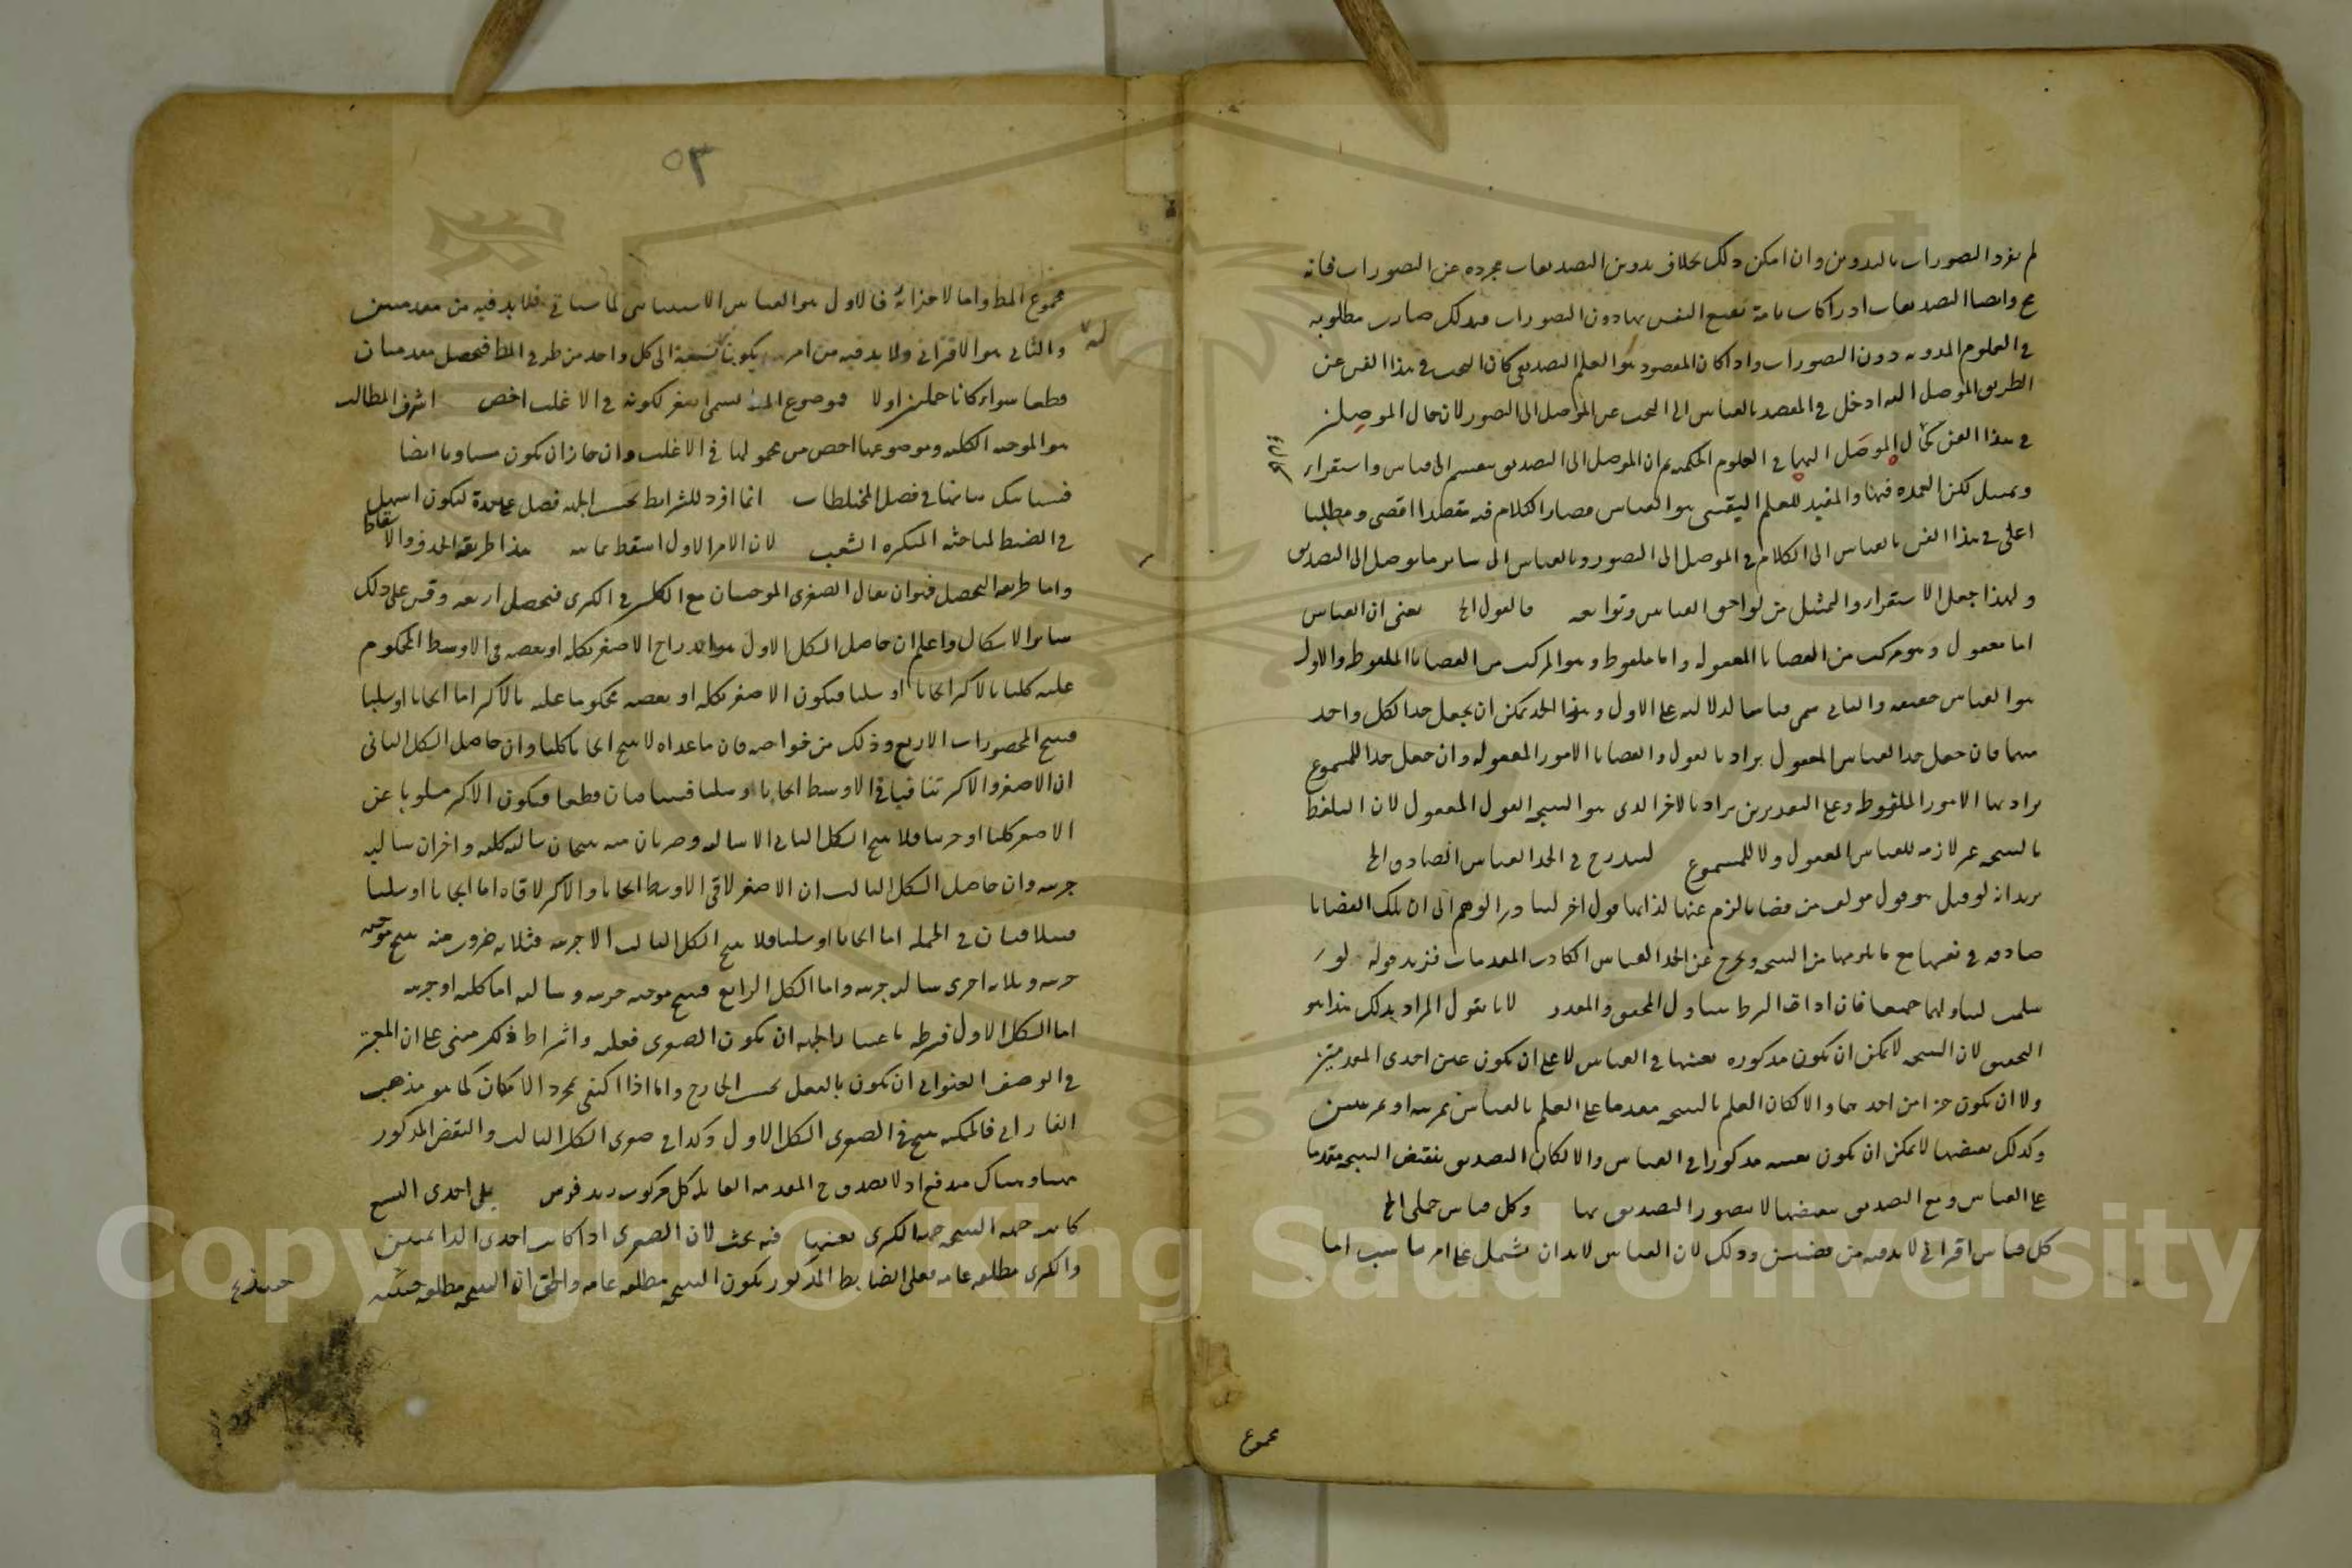 لم يفرد التصورات بالتدوين وان امكن ذلك بخلاف تدوين التصديقات مجردة عن التصورات فانه
مح وايضا التصديقات ادراكات تامة تقنع النفس بها دون التصورات فلذلك صارت مطلوبه
في العلوم المدونه دون التصورات واذا كان المقصود هو العلم التصديقي كان البحث في هذا الفن عن
الطريق الموصل اليه ادخل في القصد بالقياس الى البحث عن الموصل الى التصور لان حال الموصلين
في هذا الفن كحال الموصل اليهما في العلوم الحكميه ثم ان الموصل الى التصديق ينقسم الى قياس واستقراء
وتمثيل لكن العمده فيها والمفيد للعلم اليقيني هو القياس فصار الكلام فيه مقصدا اقصى ومطلبا
اعلى في هذا الفن بالقياس الى الكلام في الموصل الى التصور وبالقياس الى سائر ما يوصل الى التصديق
ولهذا جعل الاستقراء والتمثيل من لواحق القياس وتوابعه فالقول الخ يعني ان القياس
اما معقول وهو مركب من القضايا المعقوله واما ملفوظ وهو المركب من القضايا الملفوظه والاول
هو القياس حقيقه والثاني سمي قياسا لدلالته على الاول وهذا الحد يمكن ان يجعل حدا لكل واحد
منهما فان جعل حدا للقياس المعقول يراد بالقول والقضايا الامور المعقوله وان جعل حدا للمسموع
يراد بهما الامور الملفوظه وعلى التقديرين يراد بالاخر الذي هو النتيجه القول المعقول لان التلفظ
بالنتيجه غير لازم للقياس المعقول ولا للمسموع ليندرج في الحد القياس الصادق الخ
يريد انه لو قيل هو قول مؤلف من قضايا لزم عنها لذاتها قول اخر لتبادر الوهم الى ان تلك القضايا
صادقه في نفسها مع ما يلزمها من النتيجه ويخرج عن الحد القياس الكاذب المقدمات فزيد قوله لو
سلمت ليتناولهما جميعا فان اداة الشرط يتناول المحقق والمقدر لانا نقول المراد بذلك هذا هو
التحقيق لان النتيجه لا يمكن ان تكون مذكوره بعينها في القياس لا على ان تكون عين احدى المقدمتين
ولا ان تكون جزءا من احديهما والا لكان العلم بالنتيجه مقدما على العلم بالقياس بمرتبه او بمرتبتين
وكذلك نقيضها لا يمكن ان يكون بعينه مذكورا في القياس والا لكان التصديق بنقيض النتيجه مقدما
على القياس ومع التصديق بنقيضها لا يتصور التصديق بها وكل قياس حملي الخ
كل قياس اقتراني لابد فيه من قضيتين وذلك لان القياس لابد ان يشتمل على امر يناسب اما
مجموع
٥٣
مجموع المط واما لاجزائه فالاول هو القياس الاستثنائي كما سياتي فلابد فيه من مقدمتين
والثاني هو الاقتراني ولابد فيه من امر يكون له نسبة الى كل واحد من طرفي المط فيحصل مقدمتان
قطعا سواء كانتا حمليتين اولا فموضوع المط يسمى اصغر لكونه في الاغلب اخص اشرف المطالب
هو الموجبه الكليه وموضوعها اخص من محمولها في الاغلب وان جاز ان يكون مساويا ايضا
فسياتيك بيانها في فصل المختلطات انما افرد للشرائط بحسب الجهه فصل علىحدة ليكون اسهل
في الضبط لمباحثه المتكثره الشعب لان الامر الاول اسقط ثمانيه هذا طريقه الحذف والاسقاط
واما طريقه التحصيل فهو ان يقال الصغرى الموجبتان مع الكليتين في الكبرى فيحصل اربعه وقس على ذلك
سائر الاشكال واعلم ان حاصل الشكل الاول هو اندراج الاصغر بكله او ببعضه في الاوسط المحكوم
عليه كليا بالاكبر ايجابا او سلبا فيكون الاصغر بكله او ببعضه محكوما عليه بالاكبر اما ايجابا او سلبا
فينتج المحصورات الاربع وذلك من خواصه فان ما عداه لا ينتج ايجابا كليا وان حاصل الشكل الثاني
ان الاصغر والاكبر تنافيا في الاوسط ايجابا او سلبا فيتنافيان قطعا فيكون الاكبر مسلوبا عن
الاصغر كليا او جزئيا فلا ينتج الشكل الثاني الا سالبه وضربان منه ينتجان سالبه كليه واخران سالبه
جزئيه وان حاصل الشكل الثالث ان الاصغر لاقى الاوسط ايجابا والاكبر لاقاه اما ايجابا او سلبا
فيتلاقيان في الجمله اما ايجابا او سلبا فلا ينتج الشكل الثالث الا جزئيه فثلاثه ضروب منه ينتج موجبه
جزئيه وثلاثه اخرى سالبه جزئيه واما الشكل الرابع فينتج موجبه جزئيه وسالبه اما كليه او جزئيه
اما الشكل الاول فشرطه باعتبار الجهه ان يكون الصغرى فعليه واشتراط ذلك مبني على ان المعتبر
في الوصف العنواني ان يكون بالفعل بحسب الخارج واما اذا اكتفى بمجرد الامكان كما هو مذهب
الفارابي فالممكنه ينتج في الصغرى الشكل الاول وكذا في صغرى الشكل الثالث والنقض المذكور
ههنا وهناك مندفع اذ لا يصدق ح المقدمه القائله كل مركوب زيد فرس بلى احدى التسع
كانت جهه النتيجه جهه الكبرى بعينها فيه بحث لان الصغرى اذا كانت احدى الدائمتين
والكبرى مطلقه عامه فعلى الضابط المذكور يكون النتيجه مطلقه عامه والحق ان النتيجه مطلقه حينيه